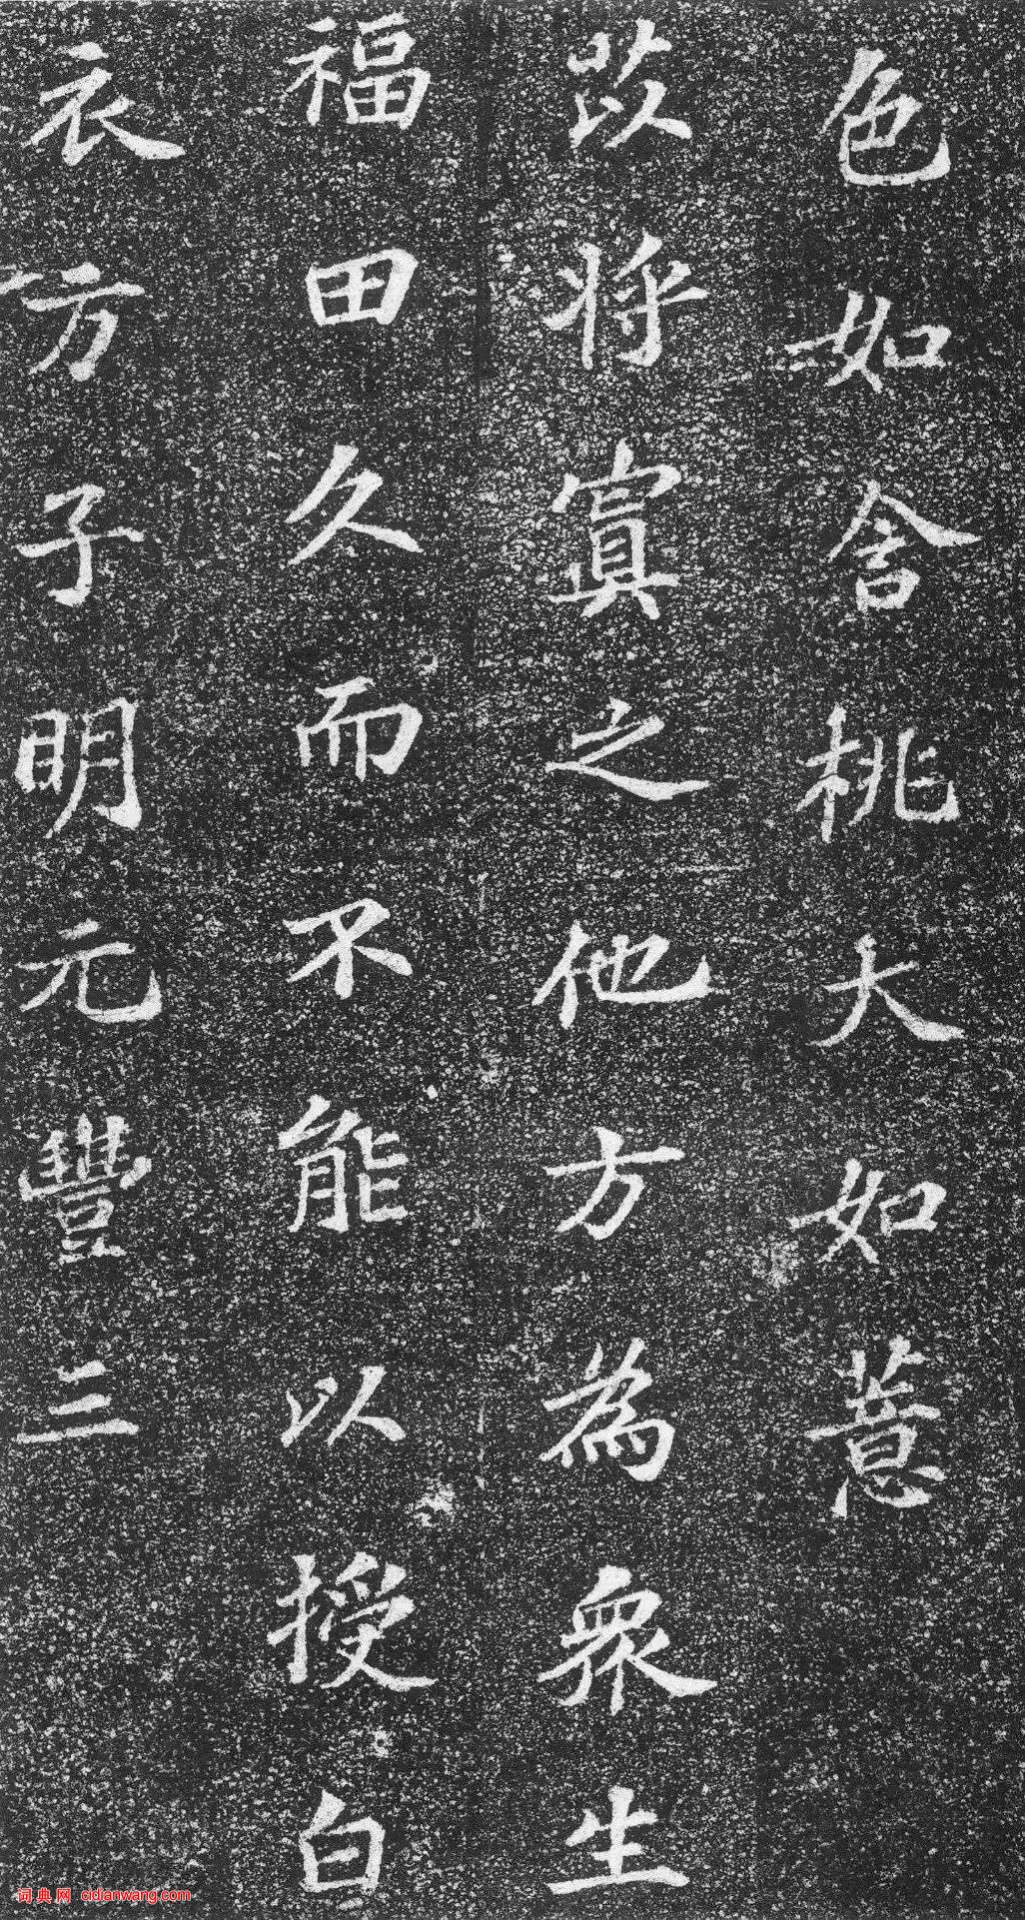 色如含桃大如薏
苡將寘之他方為衆生
福田久而不能以授白
衣方子明元豐三
词典网 cidianwang.com